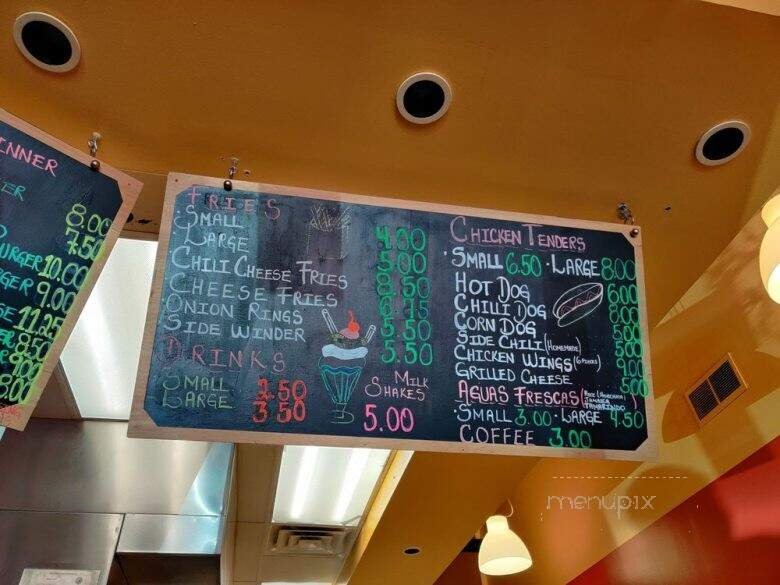 INNER
ER
8.00
7.50
BURGER 10.00
GER 9.00
11.25
8.50
8.00
FRIES
SMALL 4.00
LARGE 5.00
CHILI CHEESE FRIES 8.50
CHEESE FRIES
ONION RINGS 5.50
SIDE WINDER 5.50
DRINKS
SMALL 2.50
LARGE 3.50
MILK
SHAKES
5.00
CHICKEN TENDERS
·SMALL 6.50 ·LARGE 8.00
HOT DOG 6.00
CHILI DOG 8.00
CORN DOG 5.00
SIDE CHILI (HOMEMADE) 5.00
CHICKEN WINGS (6 PIECES) 9.00
GRILLED CHEESE 5.00
AGUAS FRESCAS (RICE (HORCHATA)
JAMAICA
TAMARINDO
·SMALL 3.00 ·LARGE 4.50
COFFEE 3.00
menupix